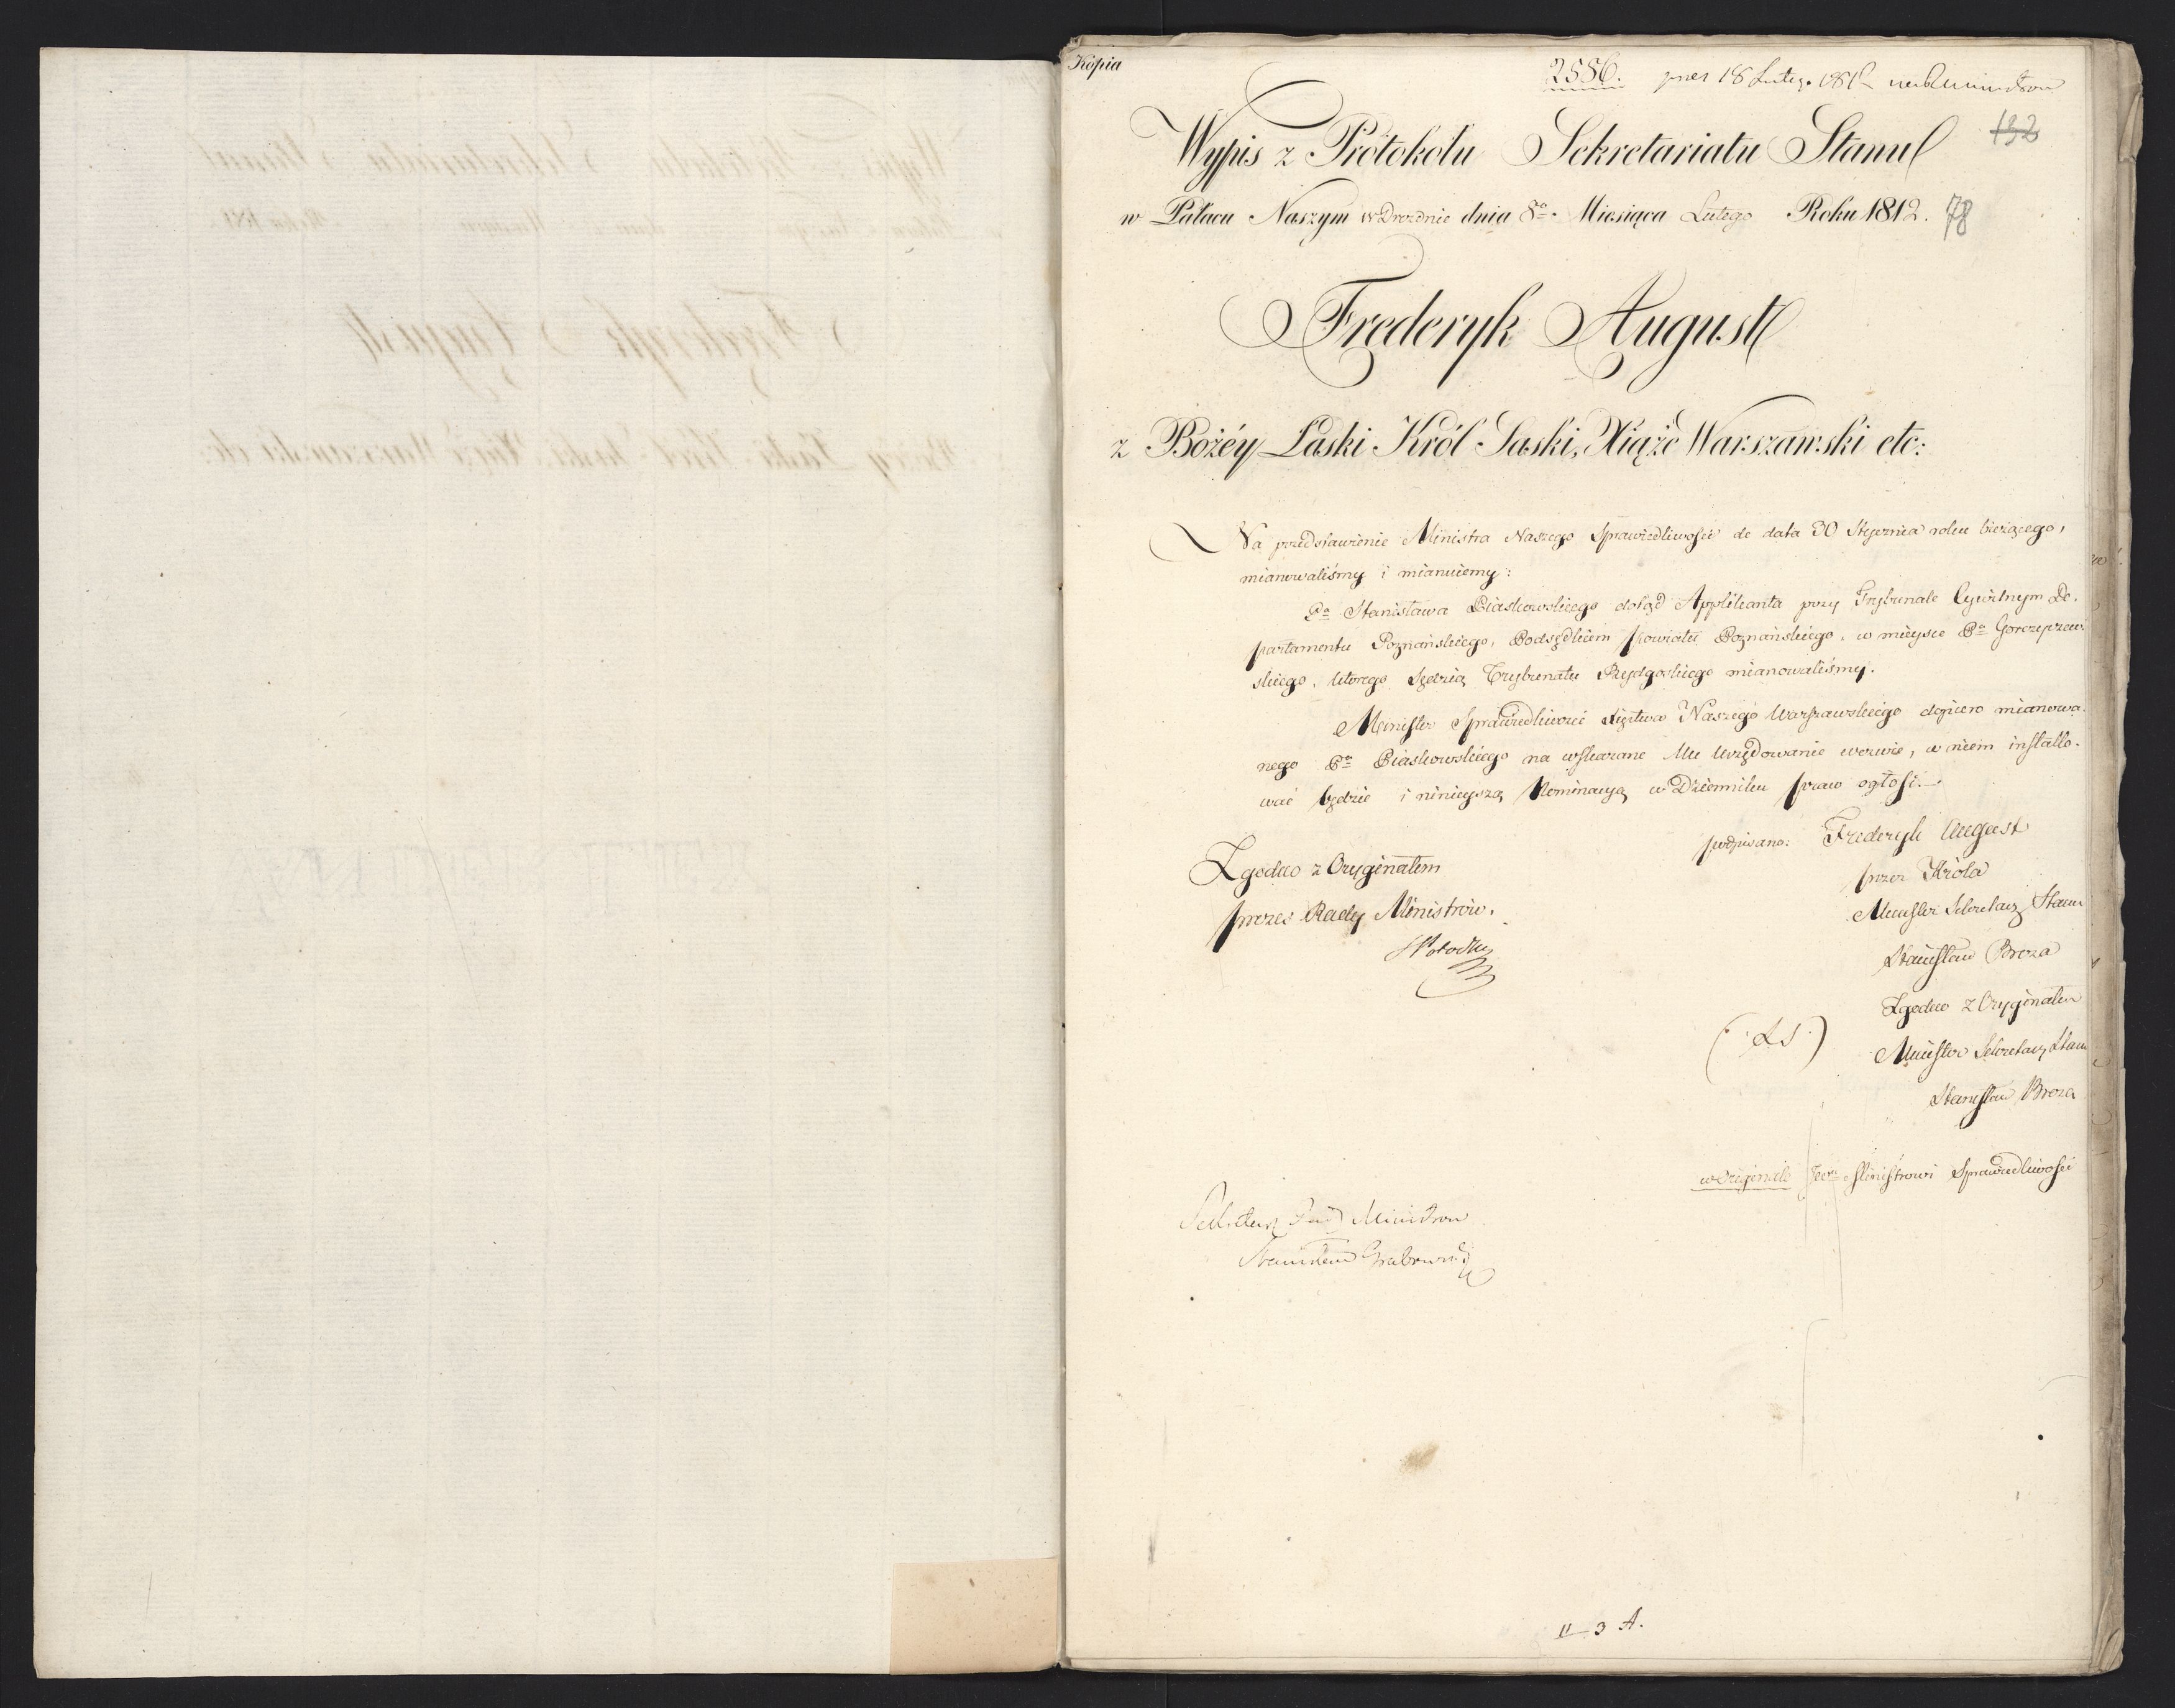 Kopia
2556. prez 18 Luteg. 1812
132
Wypis z Protokołu Sekretariatu Stanu
w Pałacu Naszym w Dreznie dnia 8º Miesiąca Lutego Roku 1812.
78
Frederyk August
z Bożéy Łaski Król Saski, Xiąże Warszawski etc:
Na przedstawienie Ministra Naszego Sprawiedliwości de data 30 Stycznia roku bieżącego,
mianowaliśmy i mianuiemy:
Pa Stanisława Piaskowskiego dotąd Applikanta przy Trybunale Cywilnym De-
partamentu Poznańskiego, Podsędkiem Powiatu Poznańskiego, w mieysce Pa Gorczyczew-
skiego, którego Sędzią Trybunału Bydgoskiego mianowaliśmy.
Minister Sprawiedliwości Xięstwa Naszego Warszawskiego dopiero mianowa-
nego Pa Piaskowskiego na wskazane Mu Urzędowanie wezwie, w niem installo-
wać będzie i ninieyszą Nominacyą w Dzienniku praw ogłosi.
podpisano: Frederyk August
Zgodno z Oryginałem
przez Króla
prezes Rady Ministrów.
Minister Sekretarz Stanu
S Potocki
Stanisław Breza
Zgodno z Oryginałem
(LS)
Minister Sekretarz Stanu
Stanisław Breza
w Originale JWu Ministrowi Sprawiedliwości
Sekretarz Rady Ministrow
Stanisław Grabowski
II 3 A.